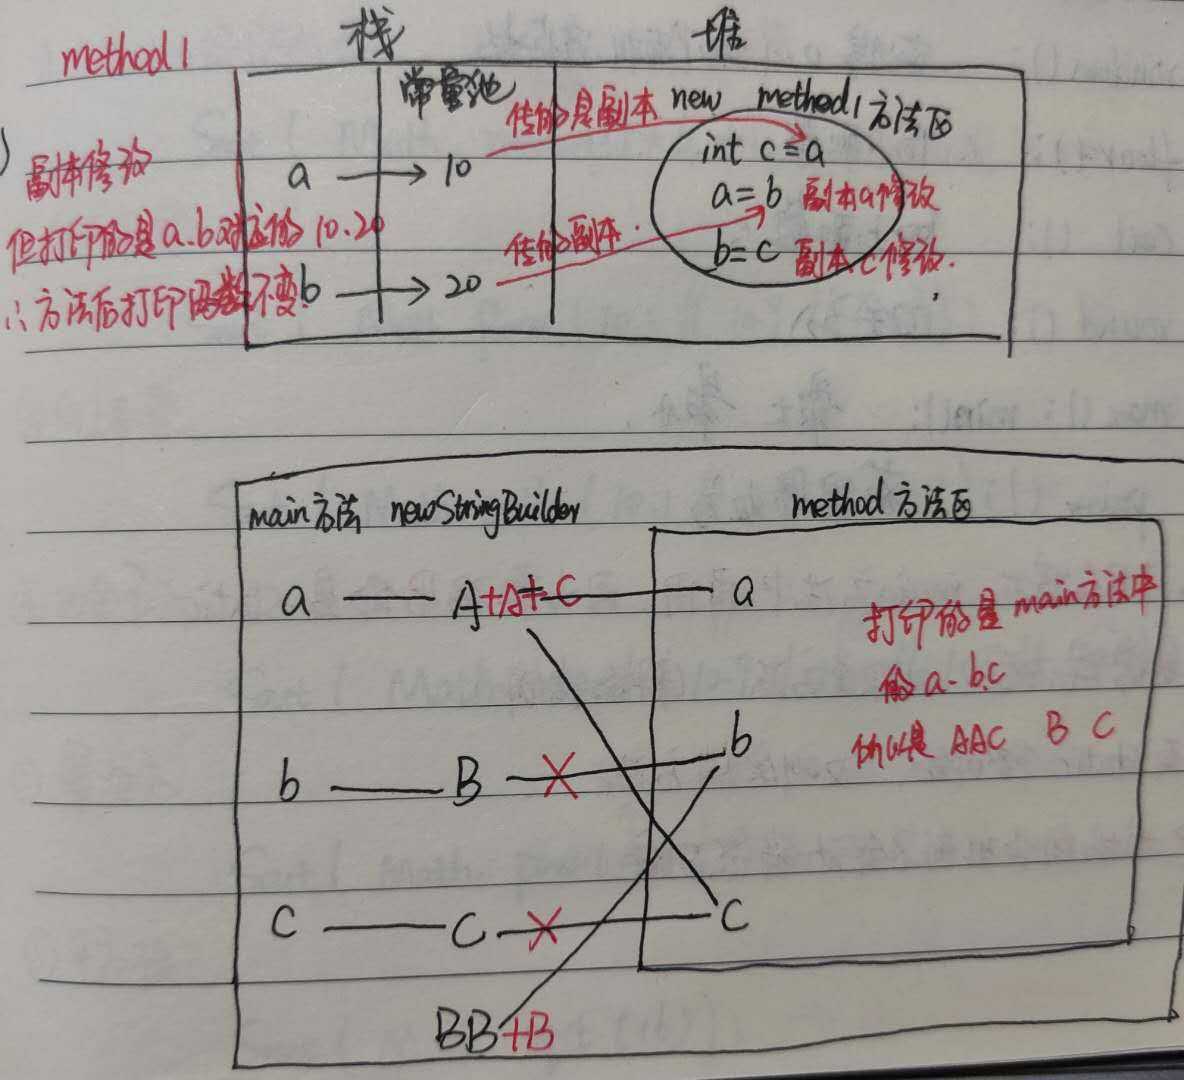 method1
栈
堆
常量池
传的是副本
new method1方法区
int c=a
a → 10
副本修改
a=b 副本a修改
但打印的是a.b对应的10.20
传的副本.
b=c 副本c修改.
b → 20
∴方法后打印函数不变
main方法 newStringBuilder
method方法区
a A+A+C a
打印的是main方法中
的a.b.c
所以是 AAC B C
b B b
C C C
BB+B